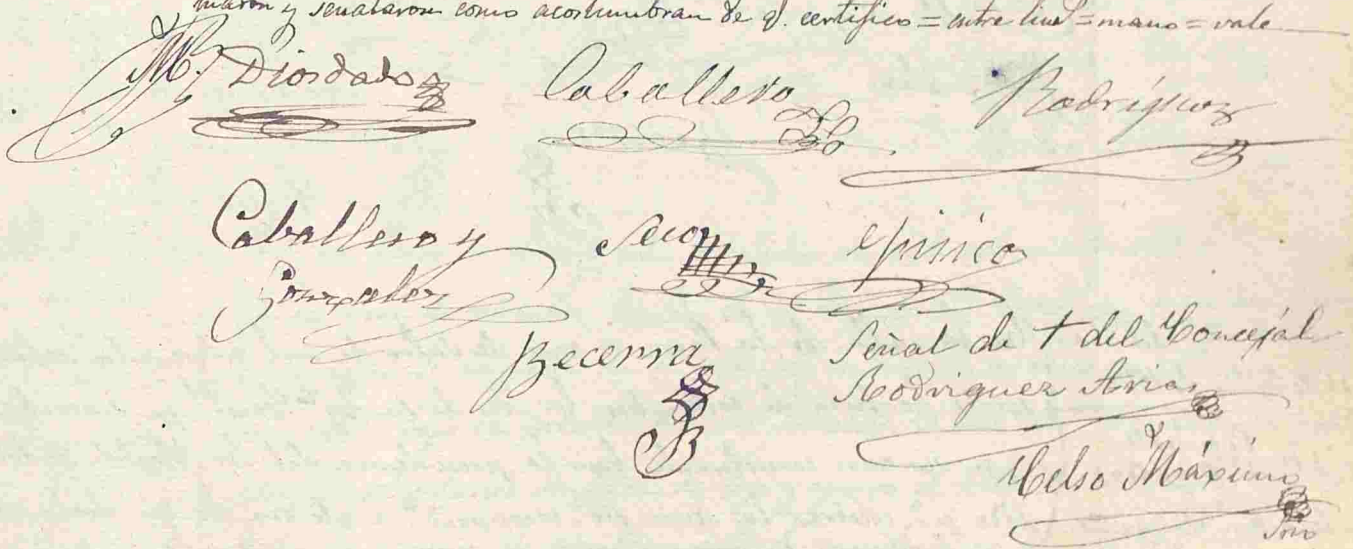 maron y señalaron como acostumbran de q. certifico = entre lineas = mano = vale
M. Diosdado
Caballero
Rodríguez
Caballero y
Gonzalez
Seco
Becerra
Señal de + del Concejal
Rodriguez Arias
Celso Máximo
Srio